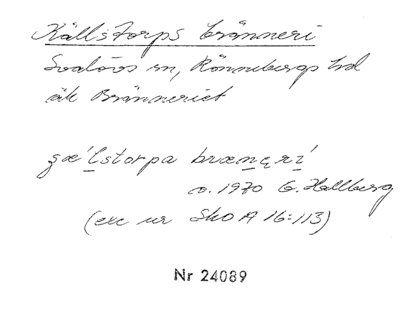 Källstorps bränneri
Svalövs sn, Rönnebergs hd
äk Bränneriet
ʒæ´lstorpa bræneri´
o. 1970 G. Hallberg
(exc ur Sko A 16:113)
Nr 24089